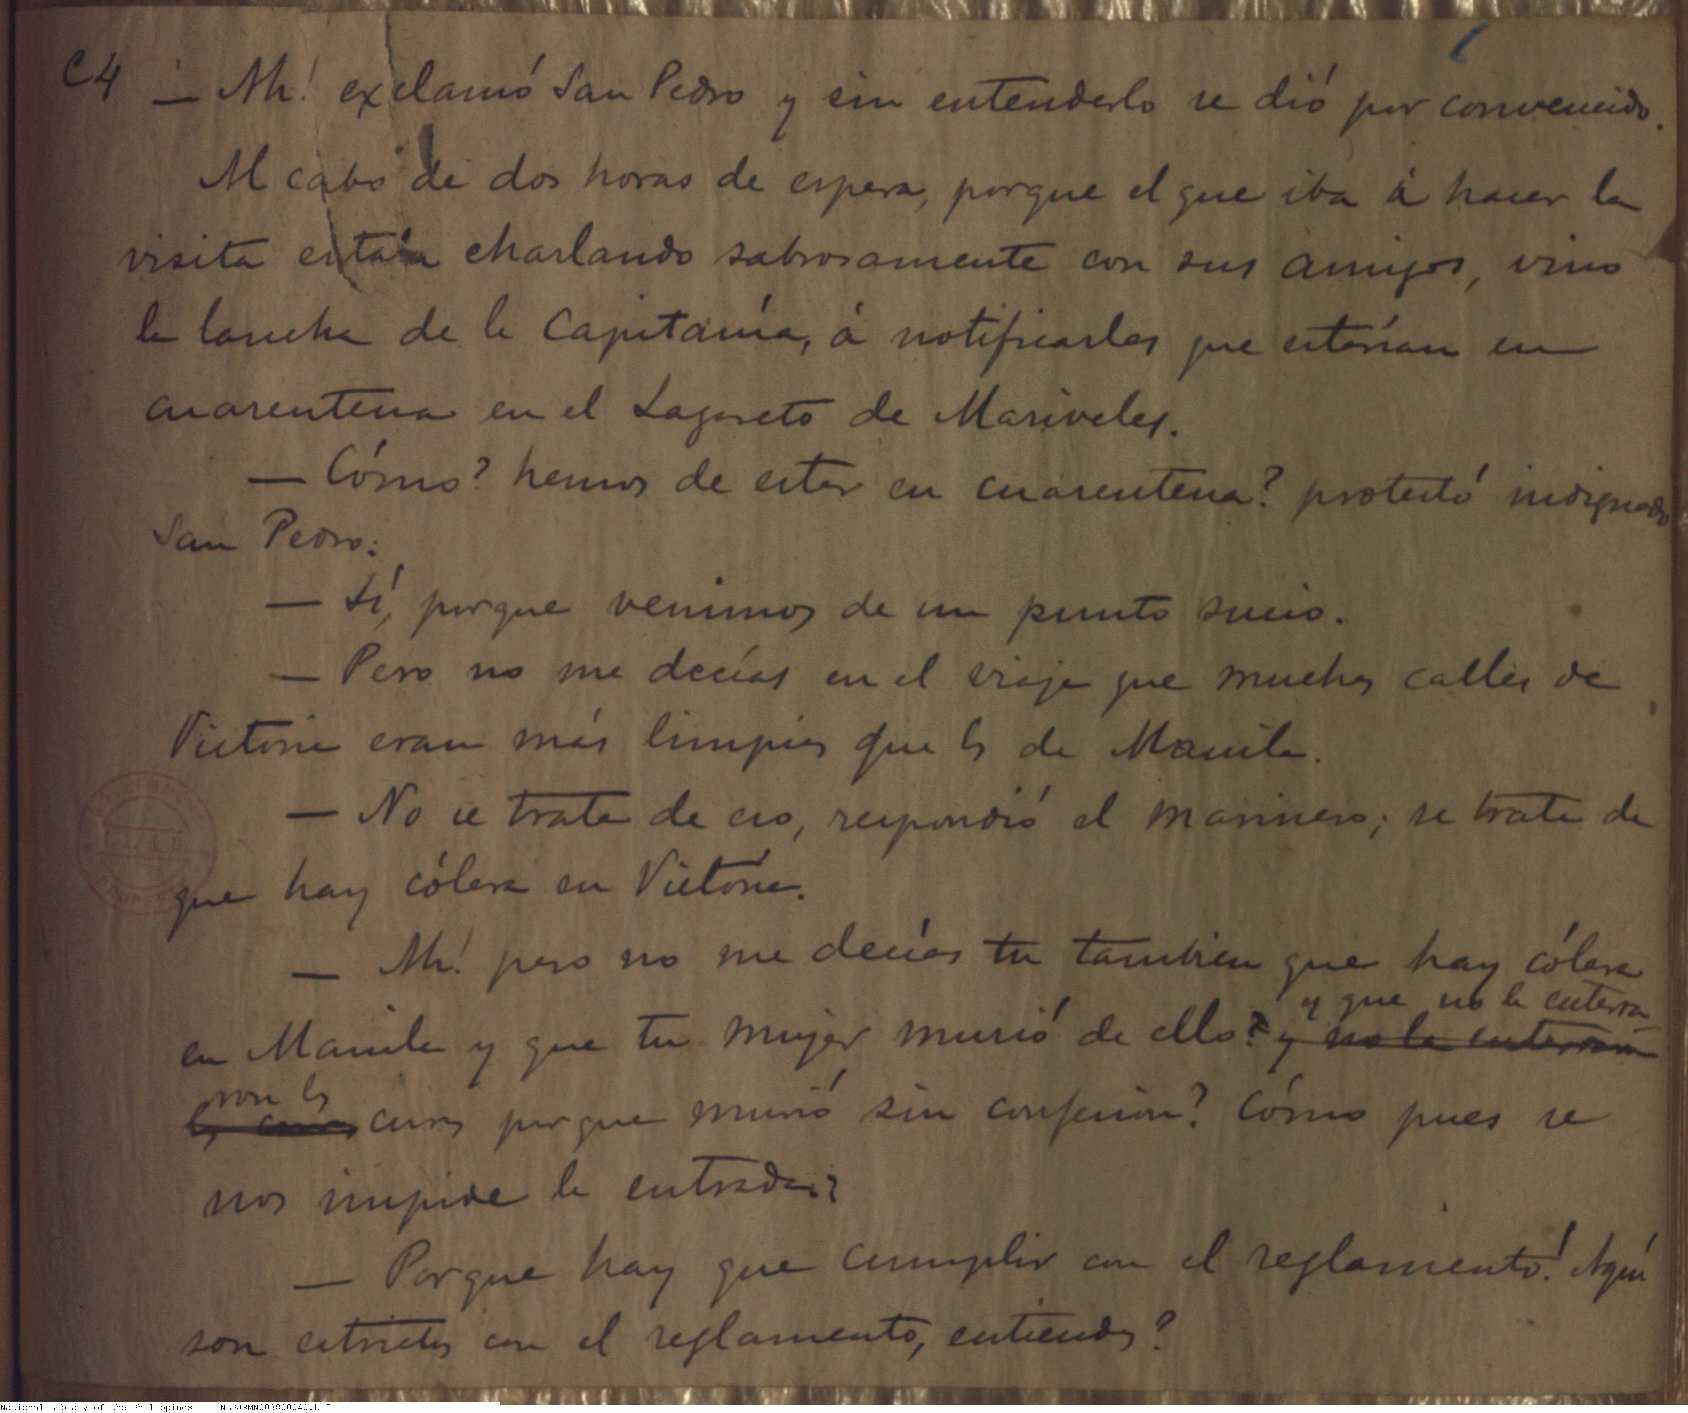 C4 — Ah! exclamó San Pedro y sin entenderlo se dió por convencido.
Al cabo de dos horas de espera, porque el que iba á hacer la
visita estaba charlando sabrosamente con sus amigos, vino
la lancha de la Capitanía, á notificarles que estarían en
cuarentena en el Lazareto de Mariveles.
— Cómo? hemos de estar en cuarentena? protestó indignado
San Pedro:
— Sí, porque venimos de un punto sucio.
— Pero no me decías en el viaje que muchas calles de
Victoria eran más limpias que las de Manila.
— No se trata de eso, respondió el marinero; se trata de
que hay cólera en Victoria.
— Ah! pero no me decías tu tambien que hay cólera
y que no la enterra
en Manila y que tu mujer murió de ello? y no la enterraron
ron los
los curas curas porque murió sin confesion? Cómo pues se
nos impide la entrada?
— Porque hay que cumplir con el reglamento! Aquí
son estrictos con el reglamento, entiendes?
National Library of the Philippines